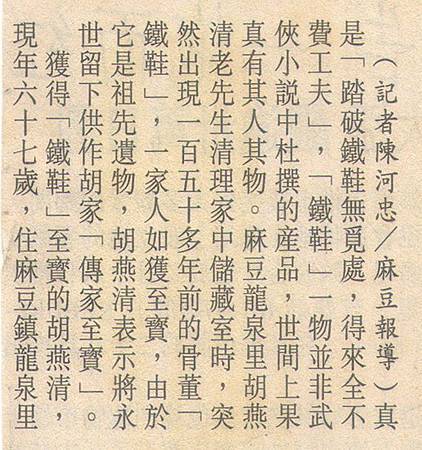 （記者陳河忠／麻豆報導）真
是「踏破鐵鞋無覓處，得來全不
費工夫」，「鐵鞋」一物並非武
俠小說中杜撰的産品，世間上果
真有其人其物。麻豆龍泉里胡燕
清老先生清理家中儲藏室時，突
然出現一百五十多年前的骨董「
鐵鞋」，一家人如獲至寶，由於
它是祖先遺物，胡燕清表示將永
世留下供作胡家「傳家至寶」。
獲得「鐵鞋」至寶的胡燕清，
現年六十七歲，住麻豆鎮龍泉里